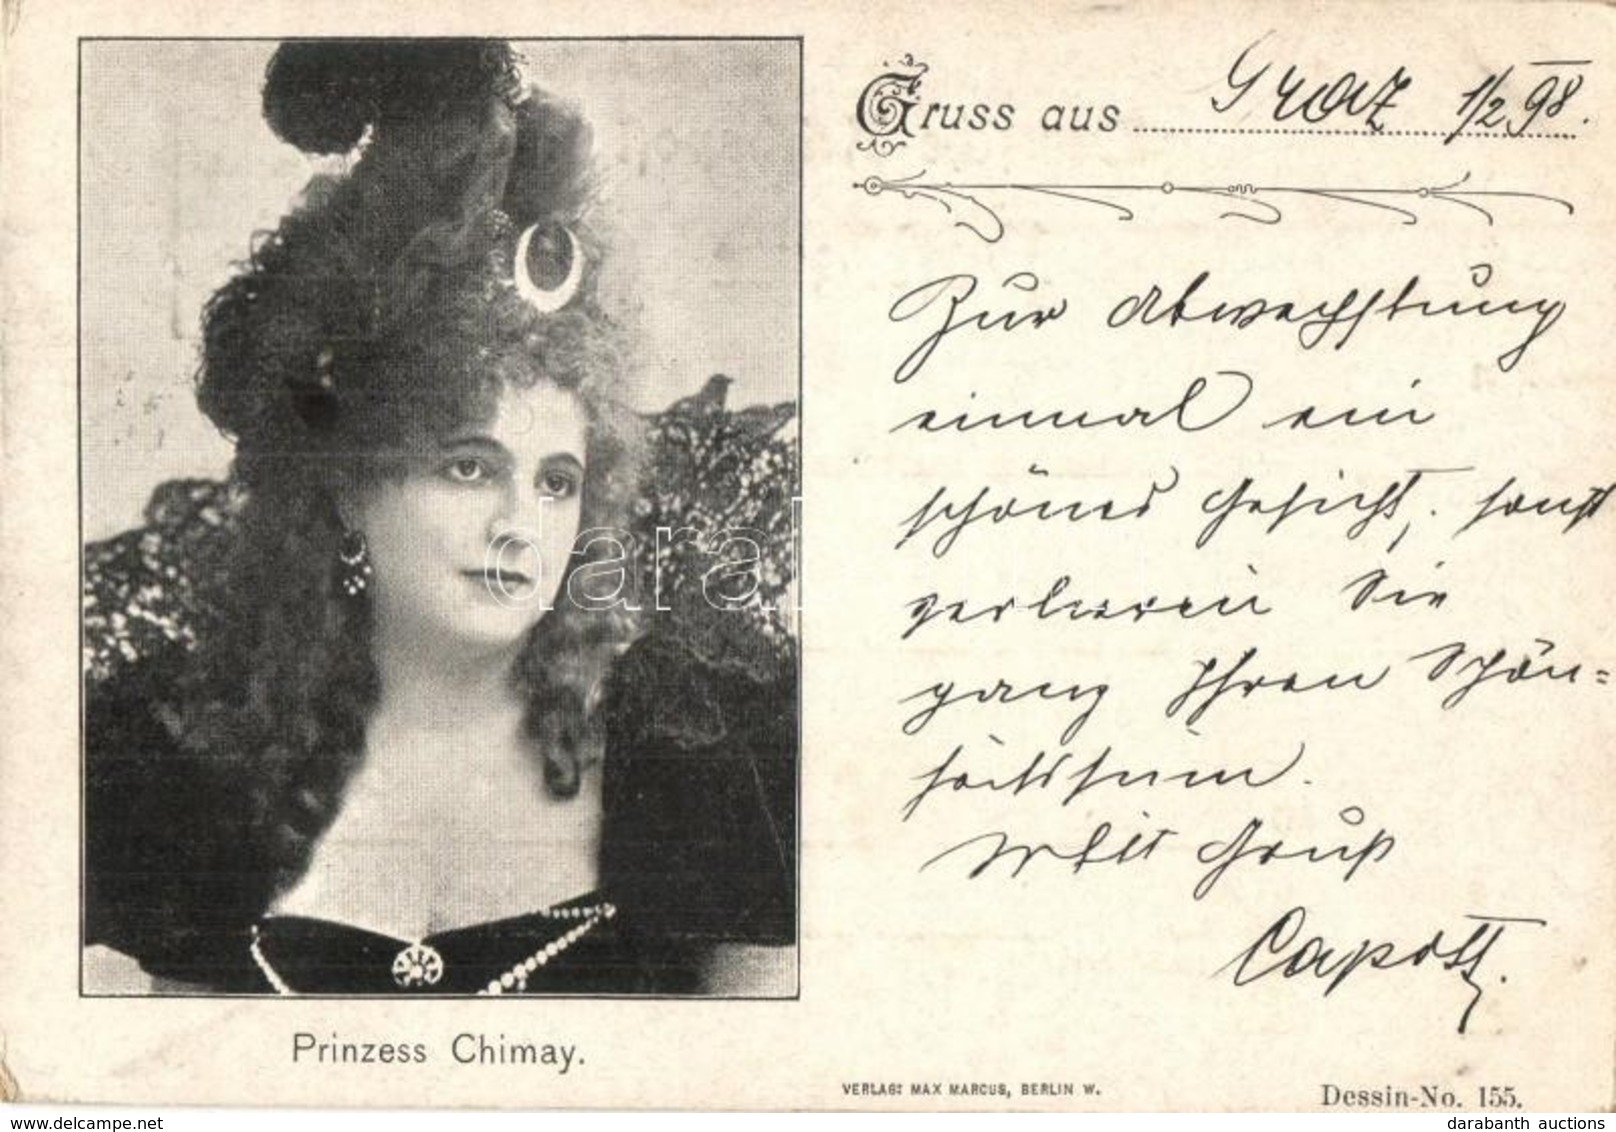 Gruss aus Graz 1/2 98.
Zur Abwechslung
einmal ein
schönes Gesicht, sonst
verlieren Sie
ganz Ihren Schön=
heitssinn.
Mit Gruß
Capott.
Prinzess Chimay.
VERLAG: MAX MARCUS, BERLIN W.
Dessin-No. 155.
darabanth.com
darabanth auctions